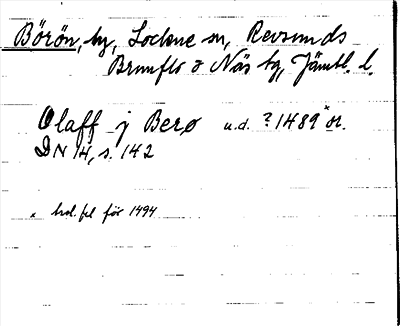 Börön, by, Lockne sn, Revsunds
Brunflo o Näs tg, Jämtl. l.
Olaff j Berø u.d. ? 1489* or.
DN 14, s. 142
x trol. fel för 1494